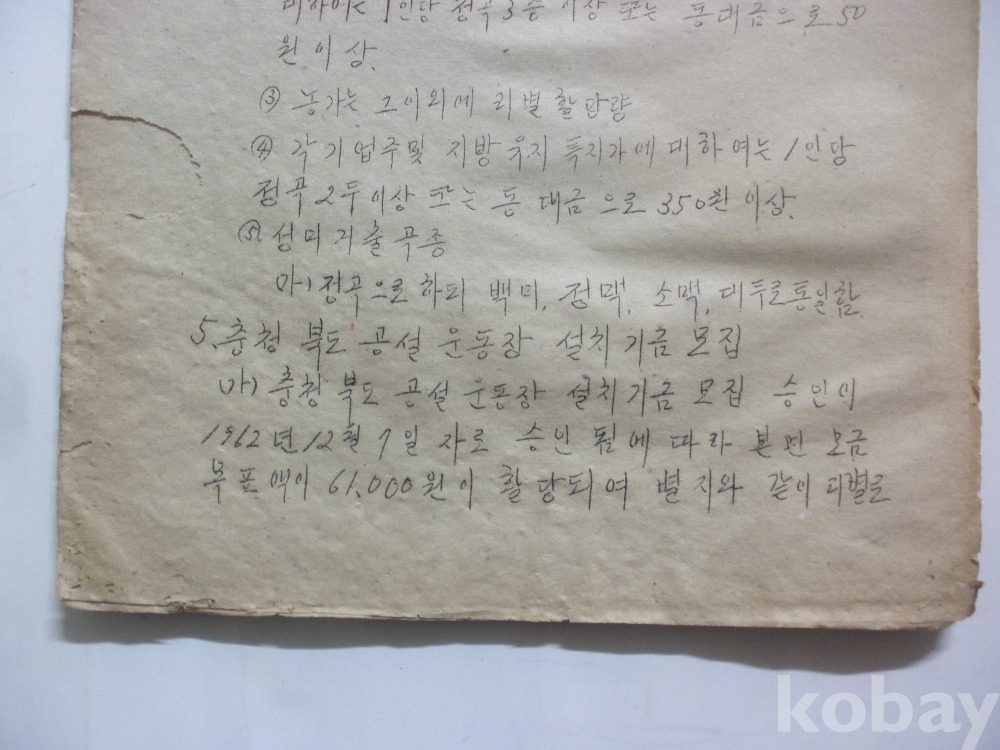 1인당 정곡 3승 이상 또는 동대금으로 50
원이상.
③ 농가는 그이외에 리별 할당량
④ 각 기업주및 지방유지 독지가에 대하여는 1인당
정곡 2두이상 또는 동 대금으로 350원 이상.
⑤ 성미 거출곡종
아) 정곡으로 하되 백미, 정맥, 소맥, 대두로 통일함.
5. 충청 북도 공설 운동장 설치기금 모집
아) 충청북도 공설 운동장 설치기금 모집 승인이
1962년 12월 7일 자로 승인 됨에 따라 본면 모금
목표액이 61,000원이 할당되여 별지와 같이 리별로
kobay